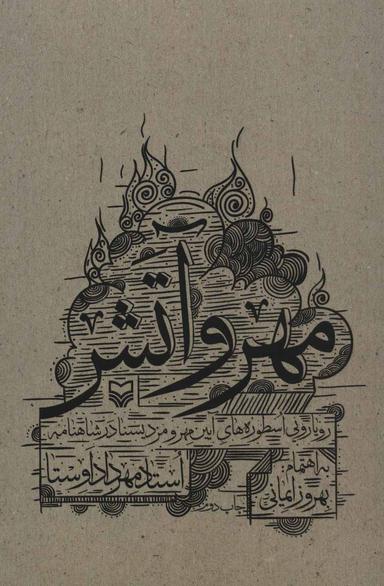 مهر و آتش
رویارویی اسطوره‌های آیین مهر و مزدیسنا در شاهنامه
به اهتمام:
بهروز ایمانی
استاد مهرداد اوستا
چاپ دوم